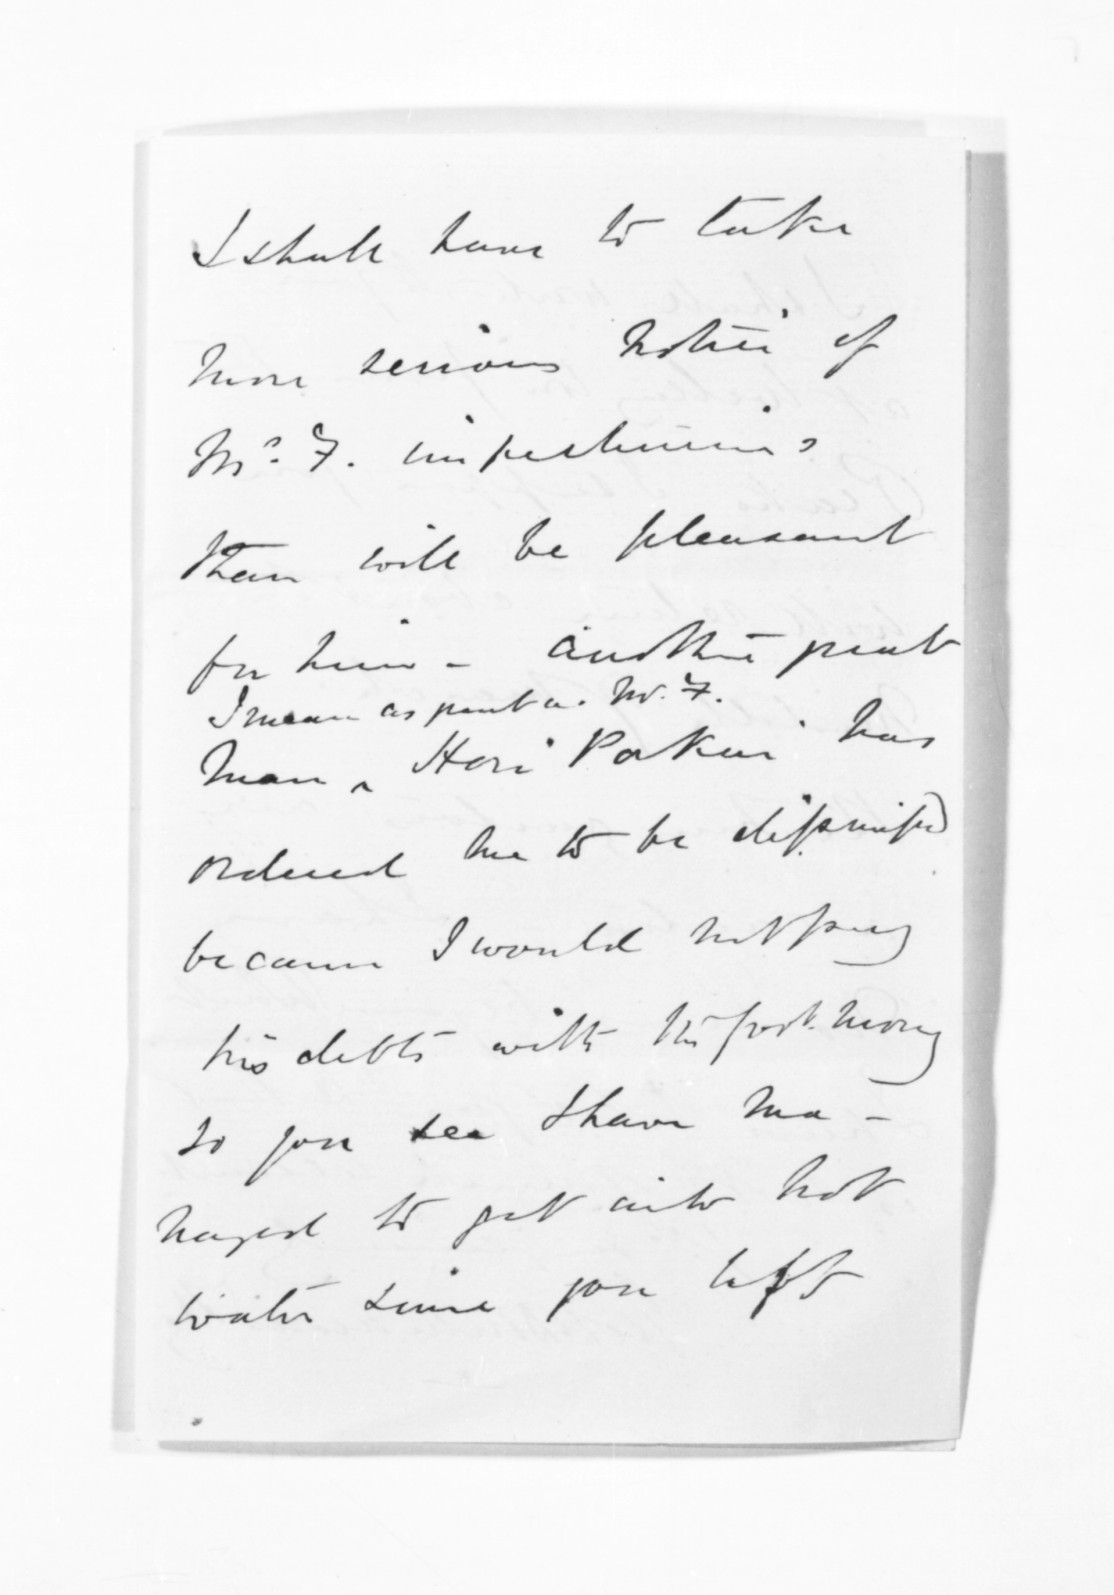 I shall have to take
more serious notice of
Mr. F. impertinence
than will be pleasant
for him - another great
I mean as great as Mr. F.
man, Hori Pokai has
ordered me to be dismissed
because I would not pay
his debts with the Govt. money
so you see I have ma -
naged to get into hot
water since you left